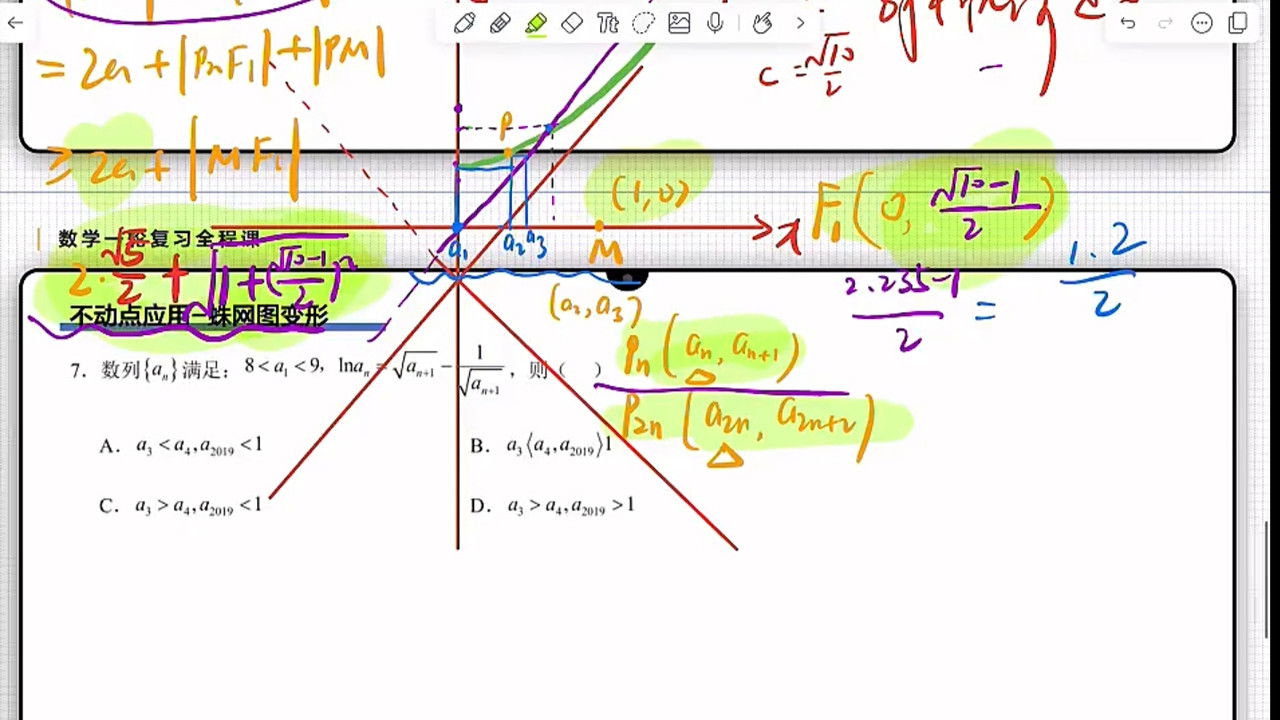 = 2a + |PnF₁| + |PM|
c = √10/2
≥ 2a + |MF₁|
P
(1,0)
F₁(0, (√10-1)/2)
数学一轮复习全程课
a₁ a₂ a₃ M x
2·√5/2 + √(1+((√10-1)/2)²)
(a₂, a₃)
(2.235-1)/2 = 1.2/2
不动点应用—蛛网图变形
Pn(aₙ, aₙ₊₁)
7. 数列{aₙ}满足：8<a₁<9，lnaₙ = √aₙ₊₁ - 1/√aₙ₊₁，则（ ）
P₂ₙ(a₂ₙ, a₂ₙ₊₂)
A. a₃<a₄,a₂₀₁₉<1
B. a₃⟨a₄,a₂₀₁₉⟩1
C. a₃>a₄,a₂₀₁₉<1
D. a₃>a₄,a₂₀₁₉>1